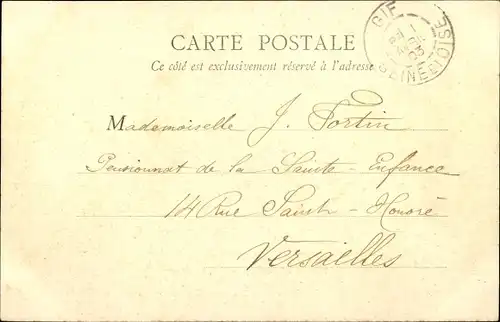 CARTE POSTALE
Ce côté est exclusivement réservé à l'adresse
GIF
SEINE ET OISE
03
Mademoiselle J. Fortin
Pensionnat de la Sainte-Enfance
14 Rue Saint-Honoré
Versailles